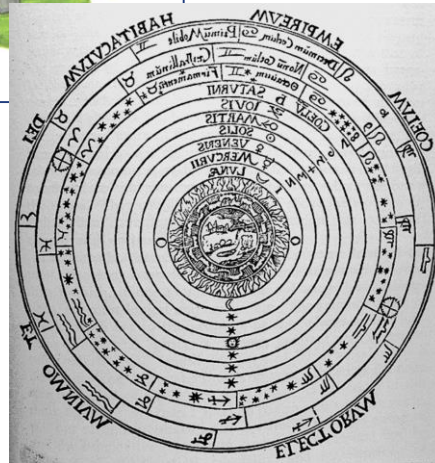 COELVM EMPIREVM HABITACVLVM DEI ET OMNIVM ELECTORVM
Decimum Cœlum Primũ Mobile
Nonũ Cœlum Cristallinum
Octauum Firmamentũ
COELV SATVRNI
IOVIS
MARTIS
SOLIS
VENERIS
MERCVRII
LVNÆ